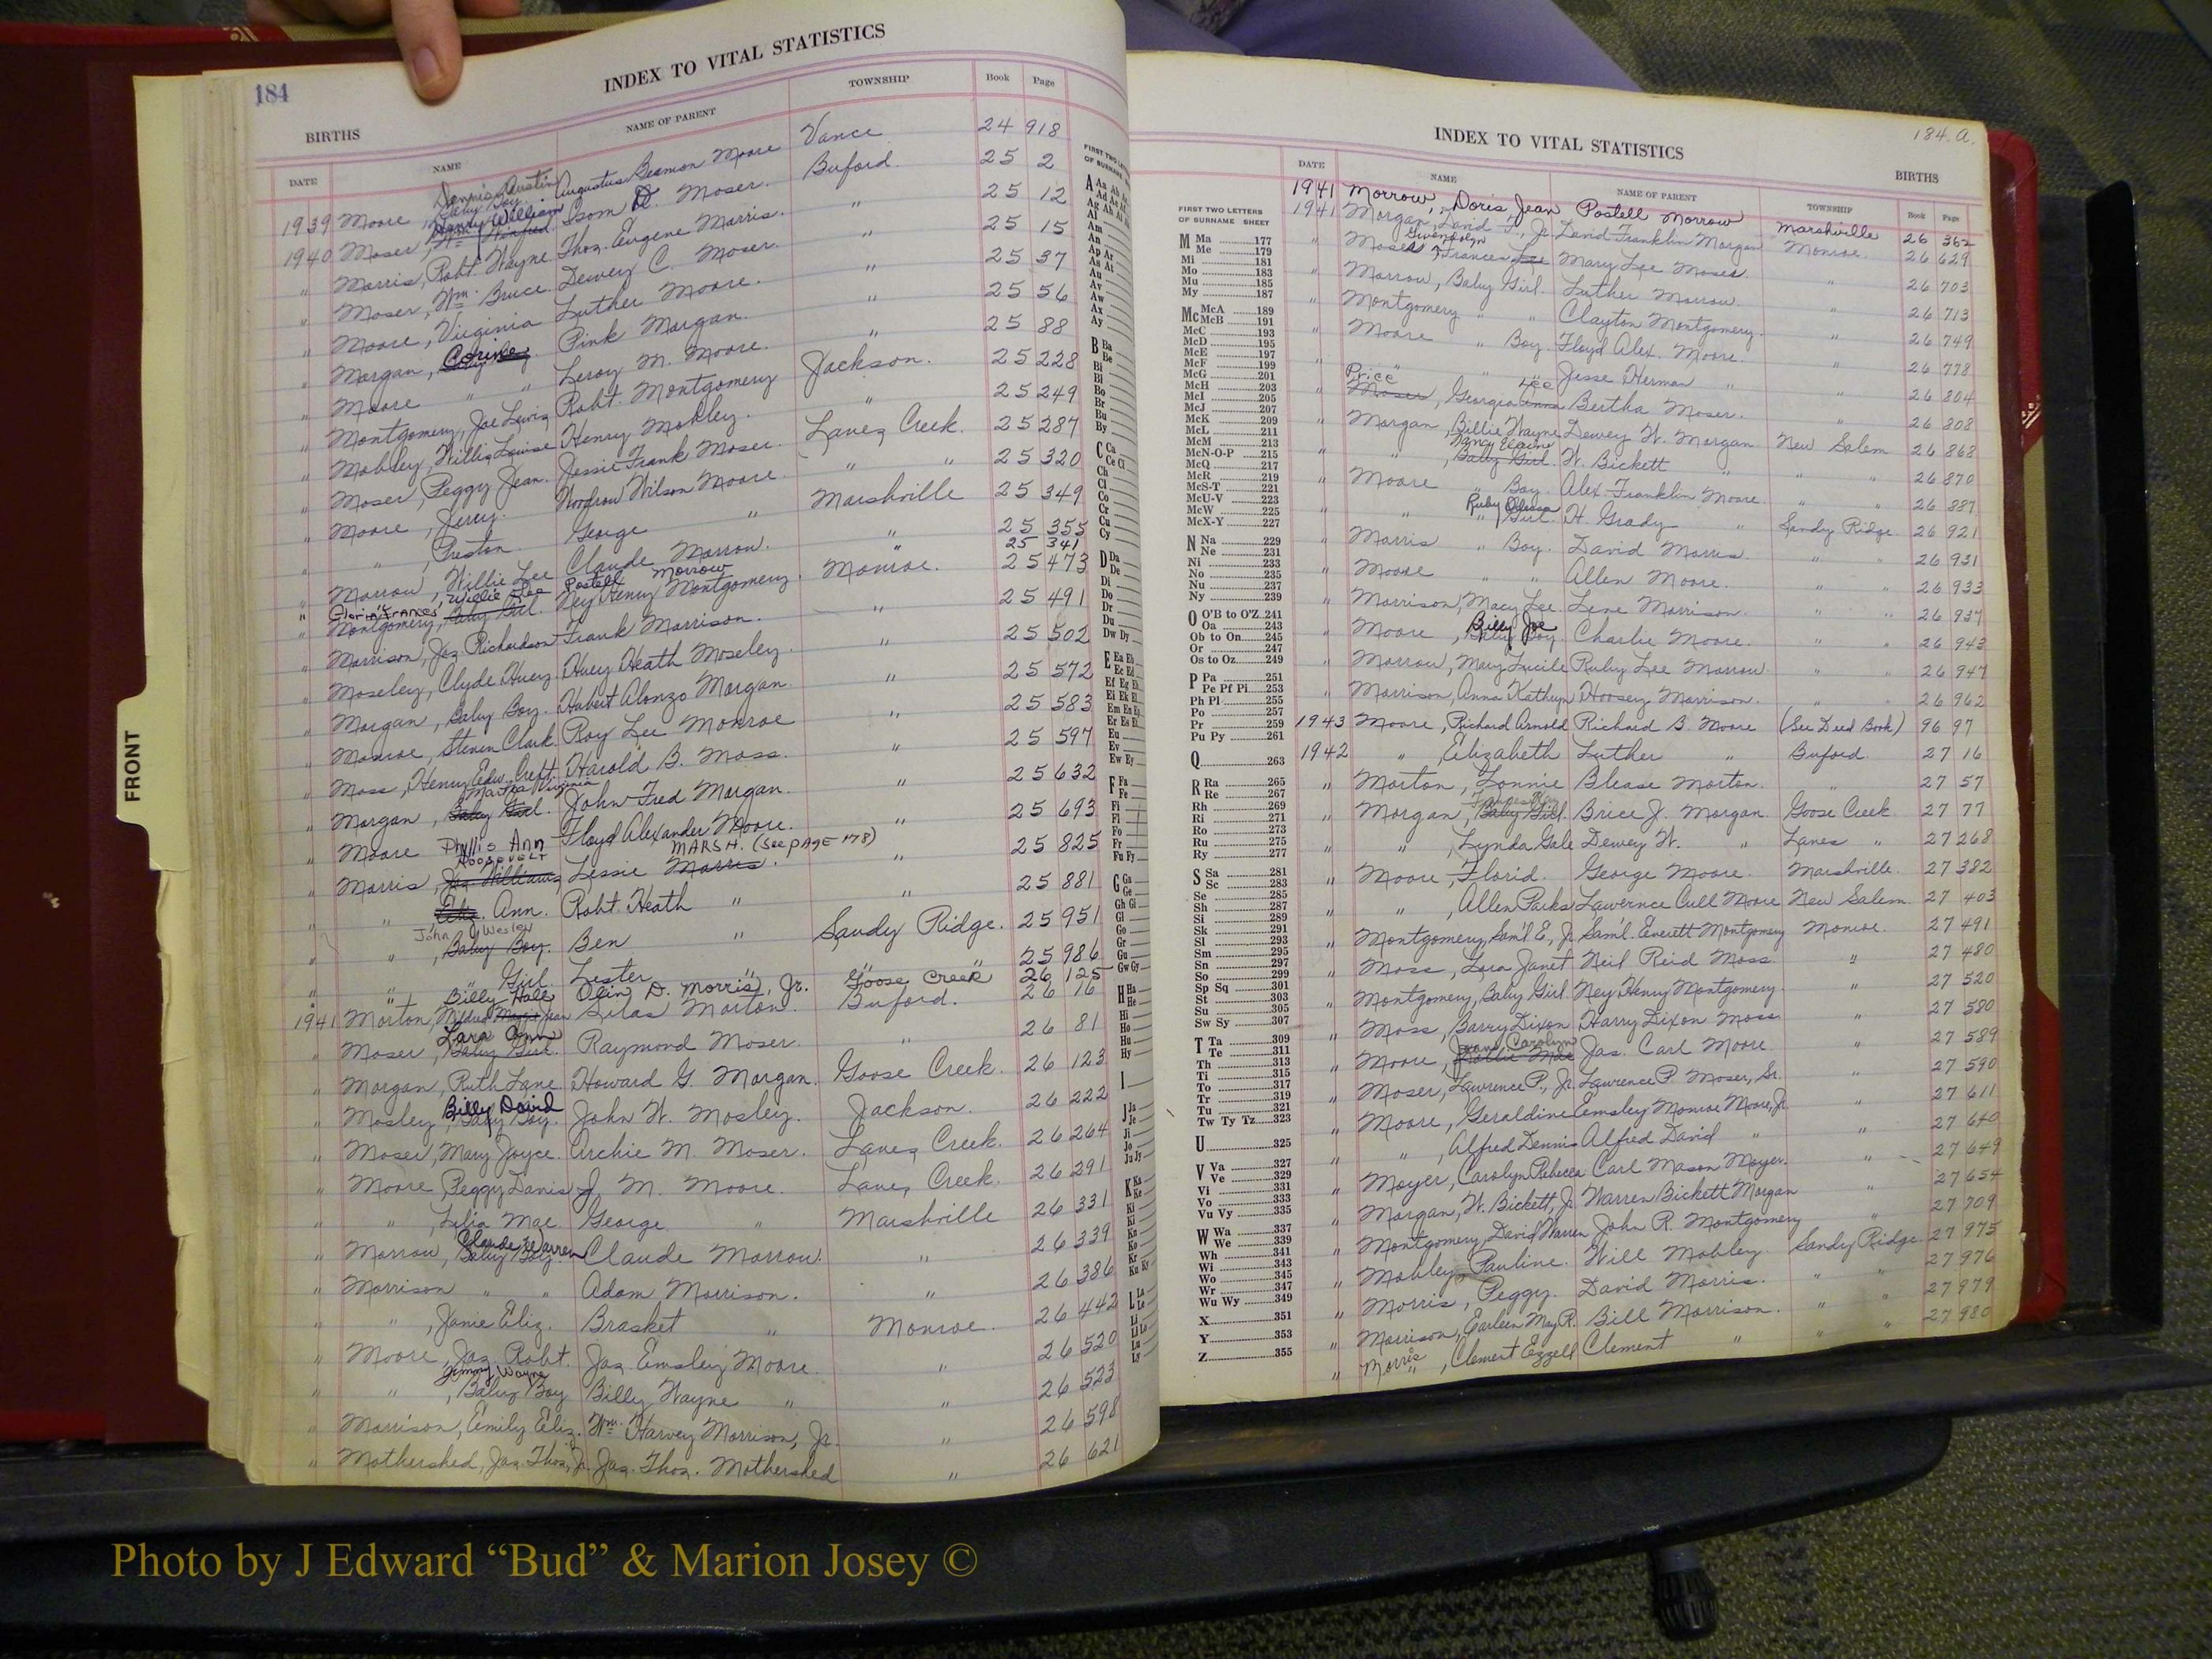 184
INDEX TO VITAL STATISTICS
BIRTHS
DATE NAME NAME OF PARENT TOWNSHIP Book Page
1939 Moore, Dennis Austin Baby Boy Augustus Beamon Moore Vance 24 918
1940 Moser, Henry William Isom D. Moser. Buford. 25 2
" Morris, Robt. Wayne Thos. Eugene Morris. " 25 12
" Moser, Wm. Bruce. Dewey C. Moser. " 25 15
" Moore, Virginia Luther Moore. " 25 37
" Morgan, Pink Morgan. " 25 56
" Moore " " Leroy M. Moore. " 25 88
" Montgomery, Joe Lewis Robt. Montgomery Jackson. 25 228
" Mobley, Willis Louise Henry Mobley. " 25 249
" Moser, Peggy Jean. Jessie Frank Moser. Lanes Creek. 25 287
" Moore, Jerry. Woodrow Wilson Moore " " 25 320
" " , Preston. George " Marshville 25 349
" Morrow, Willie Lee Claude Morrow. " 25 355
" Willie Lee Postell Morrow " 25 341
" Montgomery, Baby Girl. Ney Henry Montgomery. Monroe. 25 473
" Morrison, Jas. Richardson Frank Morrison. " 25 491
" Moseley, Clyde Huey. Huey Heath Moseley. " 25 502
" Morgan, Baby Boy. Hubert Alonzo Morgan. " 25 572
" Monroe, Steven Clark. Roy Lee Monroe " 25 583
" Moss, Henry Edw. Croft. Harold B. Moss. " 25 597
" Morgan, Martha Virginia Baby Girl. John Fred Morgan. " 25 632
" Moore Phyllis Ann Floyd Alexander Moore. " 25 693
" Morris, ROOSEVELT Jas. Williams Lessie Morris. MARSH. (See PAGE 178) " 25 825
" " , Eliz. Ann. Robt. Heath " " 25 881
" " , John Wesley Baby Boy. Ben " Sandy Ridge. 25 951
" " " Girl. Lester " " " 25 986
" Billy Hall Olin D. Morris, Jr. Goose Creek 26 125
1941 Morton, Mildred Jean Silas Morton. Buford. 26 16
" Moser, Lara Ann Baby Girl. Raymond Moser. " 26 81
" Morgan, Ruth Lane Howard G. Morgan. Goose Creek. 26 123
" Mosley, Billy David Baby Boy. John W. Mosley. Jackson. 26 222
" Moser, Mary Joyce. Archie M. Moser. Lanes Creek. 26 264
" Moore, Peggy Davis J. M. Moore. Lanes Creek. 26 291
" " , Lelia Mae. George " Marshville 26 331
" Morrow, Claude Warren Baby Boy. Claude Morrow. " 26 339
" Morrison " " Adam Morrison. " 26 386
" " , Janie Eliz. Brasket " Monroe. 26 442
" Moore, Jas. Robt. Jas. Emsley Moore. " 26 520
" " , Jimmy Wayne Baby Boy Billy Wayne " " 26 523
" Morrison, Emily Eliz. Wm. Harvey Morrison, Jr. " 26 598
" Mothershed, Jas. Thos., Jr. Jas. Thos. Mothershed " 26 621
FRONT
184.a.
INDEX TO VITAL STATISTICS
BIRTHS
DATE NAME NAME OF PARENT TOWNSHIP Book Page
1941 Morrow, Doris Jean Postell Morrow Marshville 26 362
1941 Morgan, David F., Jr. David Franklin Morgan Monroe. 26 629
" Moser, Gwendolyn Frances Lee Mary Lee Moser. " 26 703
" Morrow, Baby Girl. Luther Morrow. " 26 713
" Montgomery " " Clayton Montgomery. " 26 749
" Moore " Boy. Floyd Alex. Moore. " 26 778
" " " " Jesse Herman " " 26 804
" Price Moser, Georgia Lee Anna Bertha Moser. " 26 808
" Morgan, Billie Wayne Dewey W. Morgan New Salem 26 868
" " , Nancy Elaine Baby Girl. W. Bickett " " " 26 870
" Moore " Boy. Alex. Franklin Moore. " " 26 887
" " " Girl. H. Grady " Sandy Ridge. 26 921
" Morris " Boy. David Morris " " 26 931
" Moore " " Allen Moore. " " 26 933
" Morrison, Macy Lee. Lene Morrison. " " 26 937
" Moore, Billy Joe Baby Boy. Charlie Moore. " " 26 943
" Morrow, Mary Lucile Ruby Lee Morrow. " " 26 947
" Morrison, Anna Kathryn Hoosey Morrison. " " 26 962
1943 Moore, Richard Arnold Richard B. Moore (See Deed Book) 96 97
1942 " , Elizabeth Luther " Buford. 27 16
" Morton, Lonnie Blease Morton. " 27 57
" Morgan, Baby Girl. Brice J. Morgan. Goose Creek. 27 77
" " , Lynda Gale Dewey W. " Lanes " 27 268
" Moore, Florid. George Moore. Marshville. 27 382
" " , Allen Parks Lawernce Cull Moore New Salem. 27 403
" Montgomery, Sam'l E., Jr. Sam'l. Everett Montgomery Monroe. 27 491
" Moss, Lora Janet Neil Reid Moss. " 27 480
" Montgomery, Baby Girl. Ney Henry Montgomery. " 27 520
" Moss, Barry Dixon Harry Dixon Moss. " 27 580
" Moore, Carolyn Jas. Carl Moore " 27 589
" Moser, Lawrence P., Jr. Lawrence P. Moser, Sr. " 27 590
" Moore, Geraldine Emsley Monroe Moore, Jr. " 27 611
" " , Alfred Dennis Alfred David " " 27 640
" Moyer, Carolyn Rebecca Carl Mason Moyer. " 27 649
" Morgan, W. Bickett, Jr. Warren Bickett Morgan " 27 654
" Montgomery, David Warren John R. Montgomery " 27 709
" Mobley, Pauline. Will Mobley. Sandy Ridge. 27 975
" Morris, Peggy. David Morris. " " 27 976
" Morrison, Earleen May R. Bill Morrison. " " 27 979
" Morris, Clement Ezzell Clement " " " 27 980
FIRST TWO LETTERS
OF SURNAME SHEET
M Ma 177
Me 179
Mi 181
Mo 183
Mu 185
My 187
Mc McA 189
McB 191
McC 193
McD 195
McE 197
McF 199
McG 201
McH 203
McI 205
McJ 207
McK 209
McL 211
McM 213
McN-O-P 215
McQ 217
McR 219
McS-T 221
McU-V 223
McW 225
McX-Y 227
N Na 229
Ne 231
Ni 233
No 235
Nu 237
Ny 239
O O'B to O'Z 241
Oa 243
Ob to On 245
Or 247
Os to Oz 249
P Pa 251
Pe Pf Pi 253
Ph Pl 255
Po 257
Pr 259
Pu Py 261
Q 263
R Ra 265
Re 267
Rh 269
Ri 271
Ro 273
Ru 275
Ry 277
S Sa 281
Sc 283
Se 285
Sh 287
Si 289
Sk 291
Sl 293
Sm 295
Sn 297
So 299
Sp Sq 301
St 303
Su 305
Sw Sy 307
T Ta 309
Te 311
Th 313
Ti 315
To 317
Tr 319
Tu 321
Tw Ty Tz 323
U 325
V Va 327
Ve 329
Vi 331
Vo 333
Vu Vy 335
W Wa 337
We 339
Wh 341
Wi 343
Wo 345
Wr 347
Wu Wy 349
X 351
Y 353
Z 355
Photo by J Edward “Bud” & Marion Josey ©